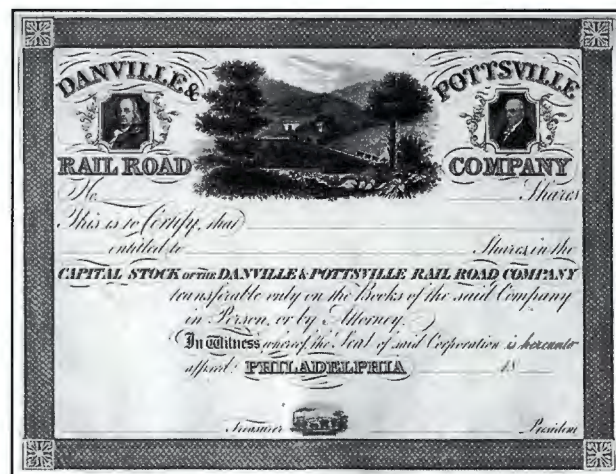 DANVILLE & POTTSVILLE
RAIL ROAD COMPANY
No. Shares
This is to Certify, that
entitled to Shares in the
CAPITAL STOCK OF THE DANVILLE & POTTSVILLE RAIL ROAD COMPANY
transferable only on the Books of the said Company
in Person, or by Attorney.
In Witness whereof, the Seal of said Corporation is hereunto
affixed. PHILADELPHIA 18
Treasurer President